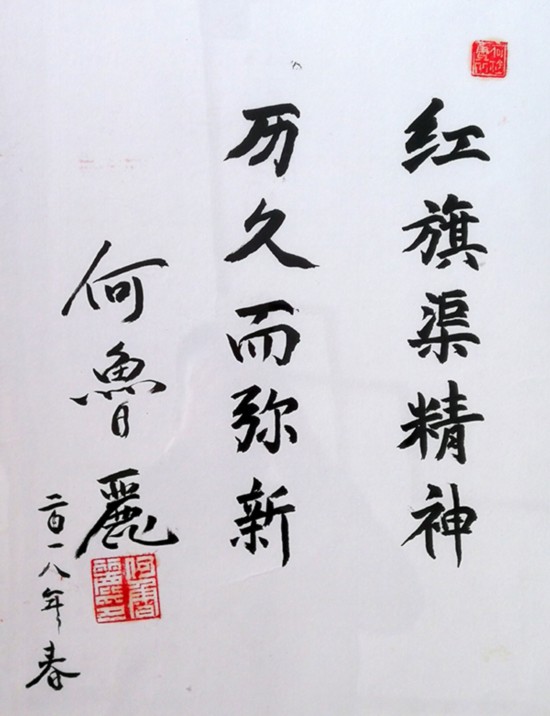 红旗渠精神
历久而弥新
何魯麗
二〇一八年春